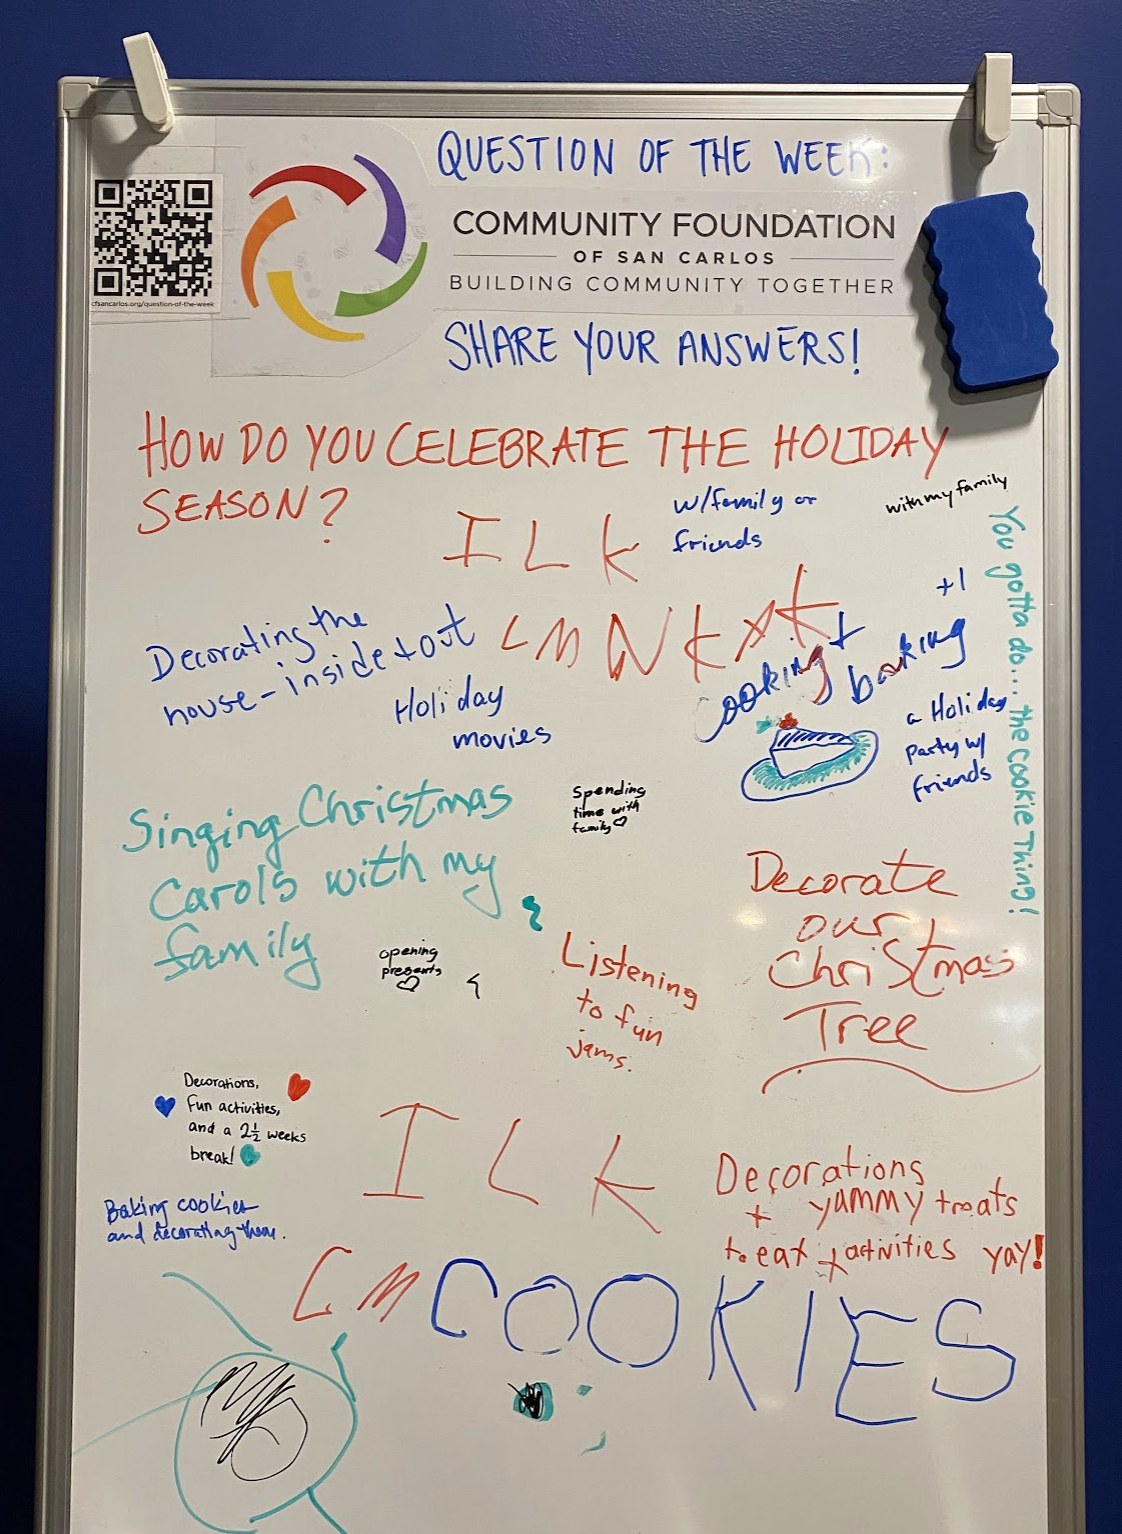 QUESTION OF THE WEEK:
COMMUNITY FOUNDATION
OF SAN CARLOS
BUILDING COMMUNITY TOGETHER
cfsancarlos.org/question-of-the-week
SHARE YOUR ANSWERS!
HOW DO YOU CELEBRATE THE HOLIDAY
SEASON?
I L K
w/family or
friends
with my family
You gotta do... the cookie Thing!
+1
Decorating the
house - inside + out
LMN
Cooking +
baking
Holiday
movies
a Holiday
party w/
friends
Singing Christmas
Carols with my
family
Spending
time with
family
Decorate
our
Christmas
Tree
opening
presents
Listening
to fun
jams.
Decorations,
Fun activities,
and a 2½ weeks
break!
I L K
Baking cookies
and decorating them.
Decorations
+ yummy treats
to eat + activities yay!
LM
COOKIES